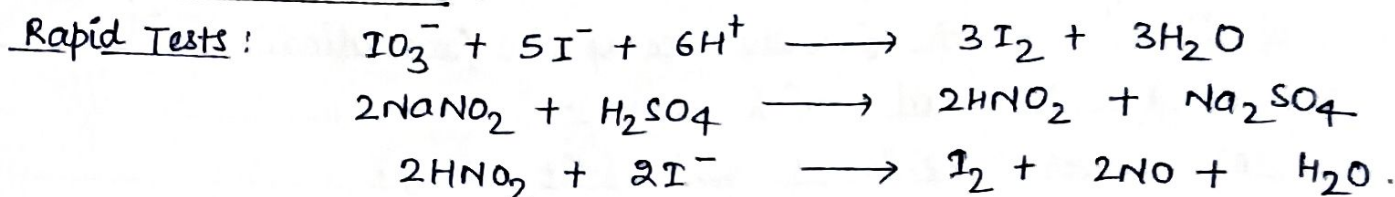 Rapid Tests : IO₃⁻ + 5I⁻ + 6H⁺ ⟶ 3I₂ + 3H₂O
2NaNO₂ + H₂SO₄ ⟶ 2HNO₂ + Na₂SO₄
2HNO₂ + 2I⁻ ⟶ I₂ + 2NO + H₂O.